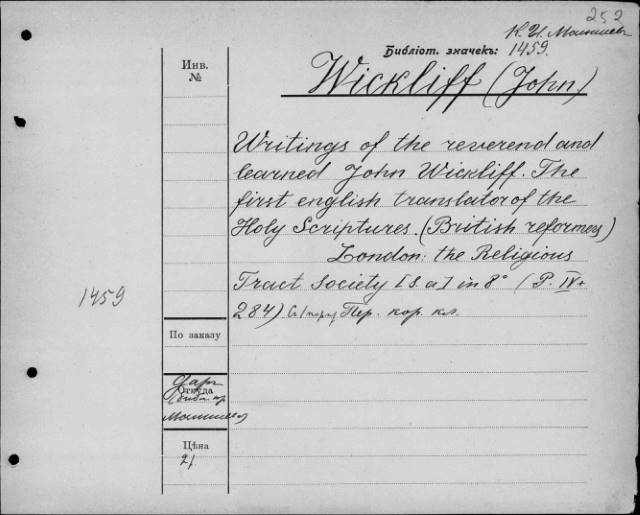 252
К. И.
Библіот. значекъ: 1459.
Инв.
№
Wickliff (John)
Writings of the reverend and
learned John Wickliff. The
first english translator of the
Holy Scriptures. (British reformers)
London: the Religious
Tract Society [S. a] in 8° (P. IV+
284) Пер. кор. кл.
1459
По заказу
Даръ
Откуда
Цѣна